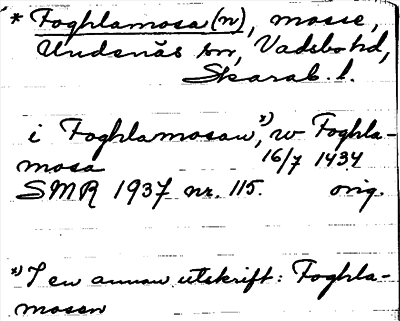 * Foghlamosa (n), mosse,
Undenäs sn, Vadsbo hd,
Skarab. l.
i Foghlamosan,*) w Foghla-
mosa 16/7 1434
SMR 1937 nr. 115. orig.
*) I en annan utskrift: Foghla-
mosen